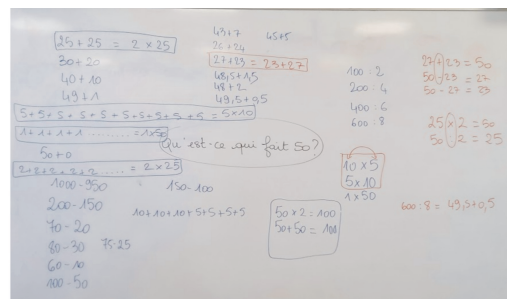 25+25 = 2×25
30+20
40+10
49+1
5+5+5+5+5+5+5+5+5+5 = 5×10
1+1+1+1 ......... = 1×50
50+0
2+2+2+2+2...... = 2×25
1000-950
200-150
70-20
80-30 75-25
60-10
100-50
43+7 45+5
26+24
27+23 = 23+27
48,5+1,5
48+2
49,5+0,5
Qu'est-ce qui fait 50?
150-100
10+10+10+5+5+5+5
50×2=100
50+50=100
100:2
200:4
400:6
600:8
10×5
5×10
1×50
27+23=50
50-23=27
50-27=23
25×2=50
50:2=25
600:8=49,5+0,5